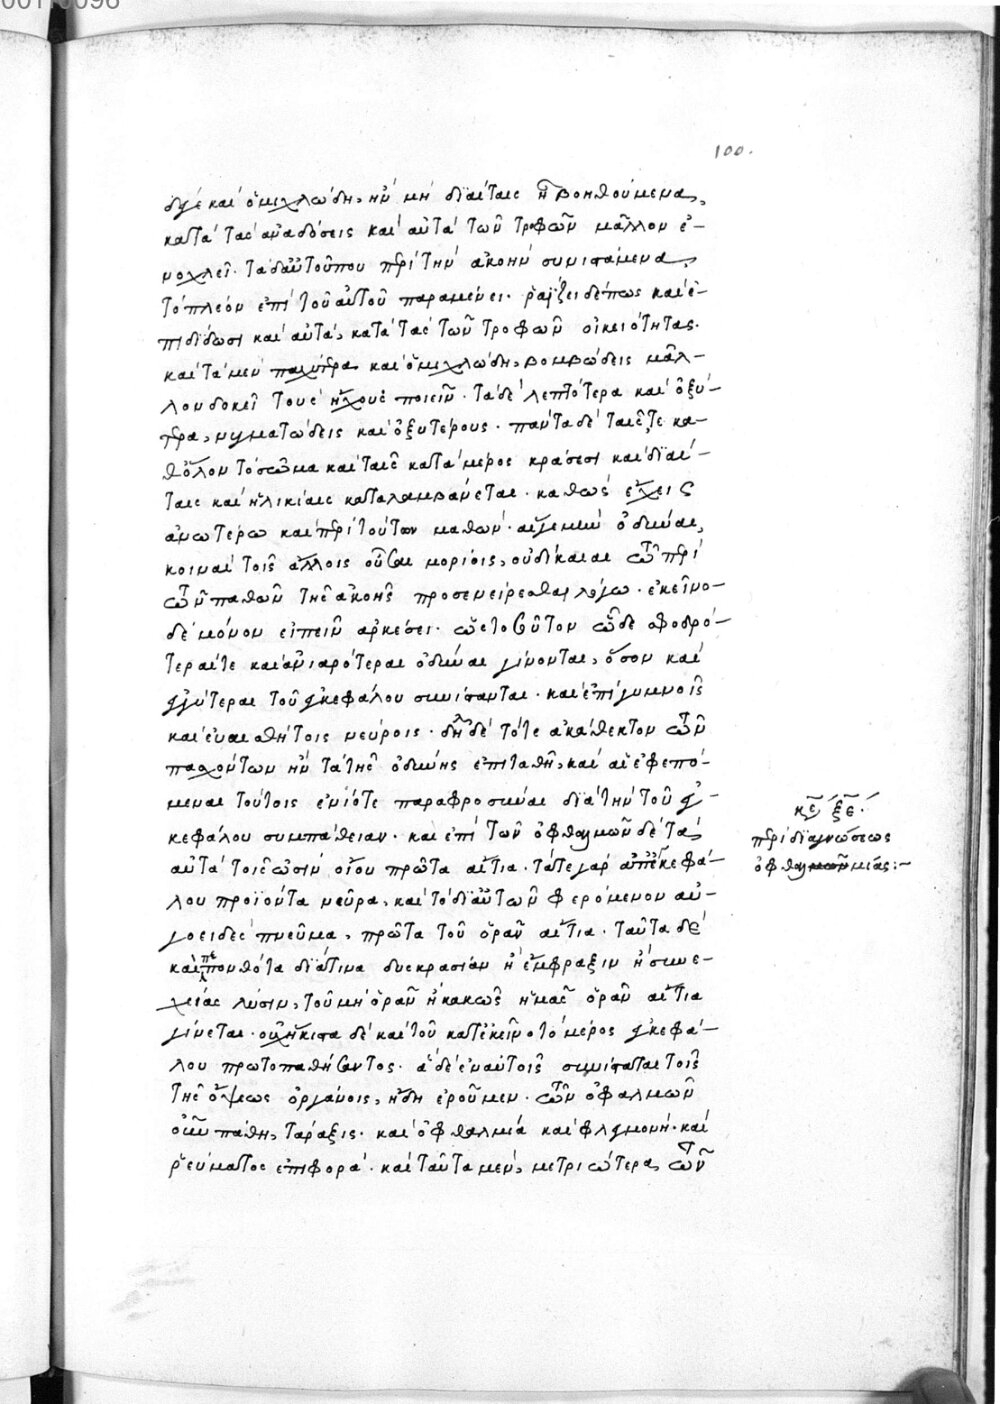 100.
δυσ καὶ ὀμιχλώδη, ἢν μὴ διαίταις ᾖ βοηθούμενα,
κατὰ τὰς ἀναδόσεις καὶ αὐτὰ τῶν τροφῶν μᾶλλον ἐ-
νοχλεῖ. τὰ δ' αὐτοῦ που περὶ τὴν ἀκοὴν συνιστάμενα,
τὸ πλεῖον ἐπὶ τοῦ αὐτοῦ παραμένει. ῥαΐζει δέ πως καὶ ἐ-
πιδίδωσι καὶ αὐτὰ, κατὰ τὰς τῶν τροφῶν οἰκειότητας.
καὶ τὰ μὲν παχύτερα καὶ ὀμιχλώδη, βομβώδεις μᾶλ-
λον δοκεῖ τοὺς ἤχους ποιεῖν. τὰ δὲ λεπτότερα καὶ ὀξύ-
τερα, νυγματώδεις καὶ ὀξυτέρους. πάντα δὲ ταῖς τε κα-
θόλου τὸ σῶμα καὶ ταῖς κατὰ μέρος κράσεσι καὶ διαί-
ταις καὶ ἡλικίαις καταλαμβάνεται. καθὼς ἔχεις
ἀνωτέρω καὶ περὶ τούτων μαθών. αἱ μὲν ὀδύναι,
κοιναὶ τοῖς ἄλλοις οὖσαι μορίοις, οὐ δίκαιαι τῷ περὶ
τῶν παθῶν τῆς ἀκοῆς προσενείρεσθαι λόγω. ἐκεῖνο
δὲ μόνον εἰπεῖν ἀρκέσει. ὡς τοσοῦτον ὧδε σφοδρό-
τεραί τε καὶ ἀνιαρότεραι ὀδύναι γίνονται, ὅσον καὶ
ἐγγύτεραι τοῦ ἐγκεφάλου συνίστανται. καὶ ἐπὶ γυμνοῖς
καὶ εὐαισθήτοις νεύροις. δῆλ δὲ τότε ἀκάθεκτον τῶν
πασχόντων ἢν τὰ τῆς ὀδύνης ἐπιταθῆ, καὶ αἱ ἐφεπό-
μεναι τούτοις ἐνίοτε παραφροσύναι διὰ τὴν τοῦ ἐγ-
κεφάλου συμπάθειαν. καὶ ἐπὶ τῶν ὀφθαλμῶν δὲ τὰ
αὐτὰ τοῖς ὠσὶν οἵου πρῶτα αἴτια. τά τε γὰρ ἀπ' ἐγκεφά-
λου προϊόντα νεῦρα, καὶ τὸ δι' αὐτῶν φερόμενον αὐ-
γοειδὲς πνεῦμα, πρῶτα τοῦ ὁρᾶν αἴτια. ταῦτα δὲ
καὶ πεπονθότα διά τινα δυσκρασίαν ἢ ἔμφραξιν ἢ συνε-
χείας λύσιν, τοῦ μὴ ὁρᾶν ἢ κακῶς ἡμᾶς ὁρᾶν αἴτια
γίνεται. οὐχ ἥκιστα δὲ καὶ τοῦ κατ' ἐκεῖνο τὸ μέρος ἐγκεφά-
λου πρωτοπαθήσαντος. ἃ δὲ ἐν αὐτοῖς συνίσταται τοῖς
τῆς ὄψεως ὀργάνοις, ἤδη ἐροῦμεν. τῶν ὀφαλμῶν
οὖν πάθη, τάραξις. καὶ ὀφθαλμία καὶ φλεγμονή. καὶ
ῥεύματος ἐπιφορά. καὶ ταῦτα μὲν, μετριώτερα, τῶν
κεφ ξε.
περὶ διαγνώσεως
ὀφθαλμῶν μίας:-